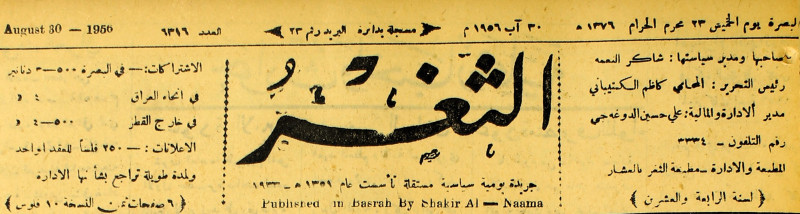 البصرة يوم الخميس ٢٣ محرم الحرام ١٣٧٦ ه
٣٠ آب ١٩٥٦ م
مسجلة بدائرة البريد رقم ٢٣
العدد ٦٣١٦
August 30 — 1956
صاحبها ومدير سياستها : شاكر النعمه
رئيس التحرير : المحامي كاظم الكشيباني
مدير الادارة والمالية : علي حسين الدوغه جي
رقم التلفون — ٣٣٣٤
المطبعة والادارة — مطبعة الثغر بالعشار
﴿ لسنة الرابعة والعشرين ﴾
الثغر
جريدة يومية سياسية مستقلة تأسست عام ١٣٥١ ه — ١٩٣٣
Published in Basrah By Shakir Al — Naama
الاشتراكات : — في البصرة ٥٠٠—٣ دنانير
في انحاء العراق ٤ د
في خارج القطر ٥٠٠—٤ د
الاعلانات : — ٢٥٠ فلساً للعقد الواحد
ولمدة طويلة تراجع بشأنها الادارة
﴿ ٦ صفحات ثمن النسخة ١٠ فلوس ﴾